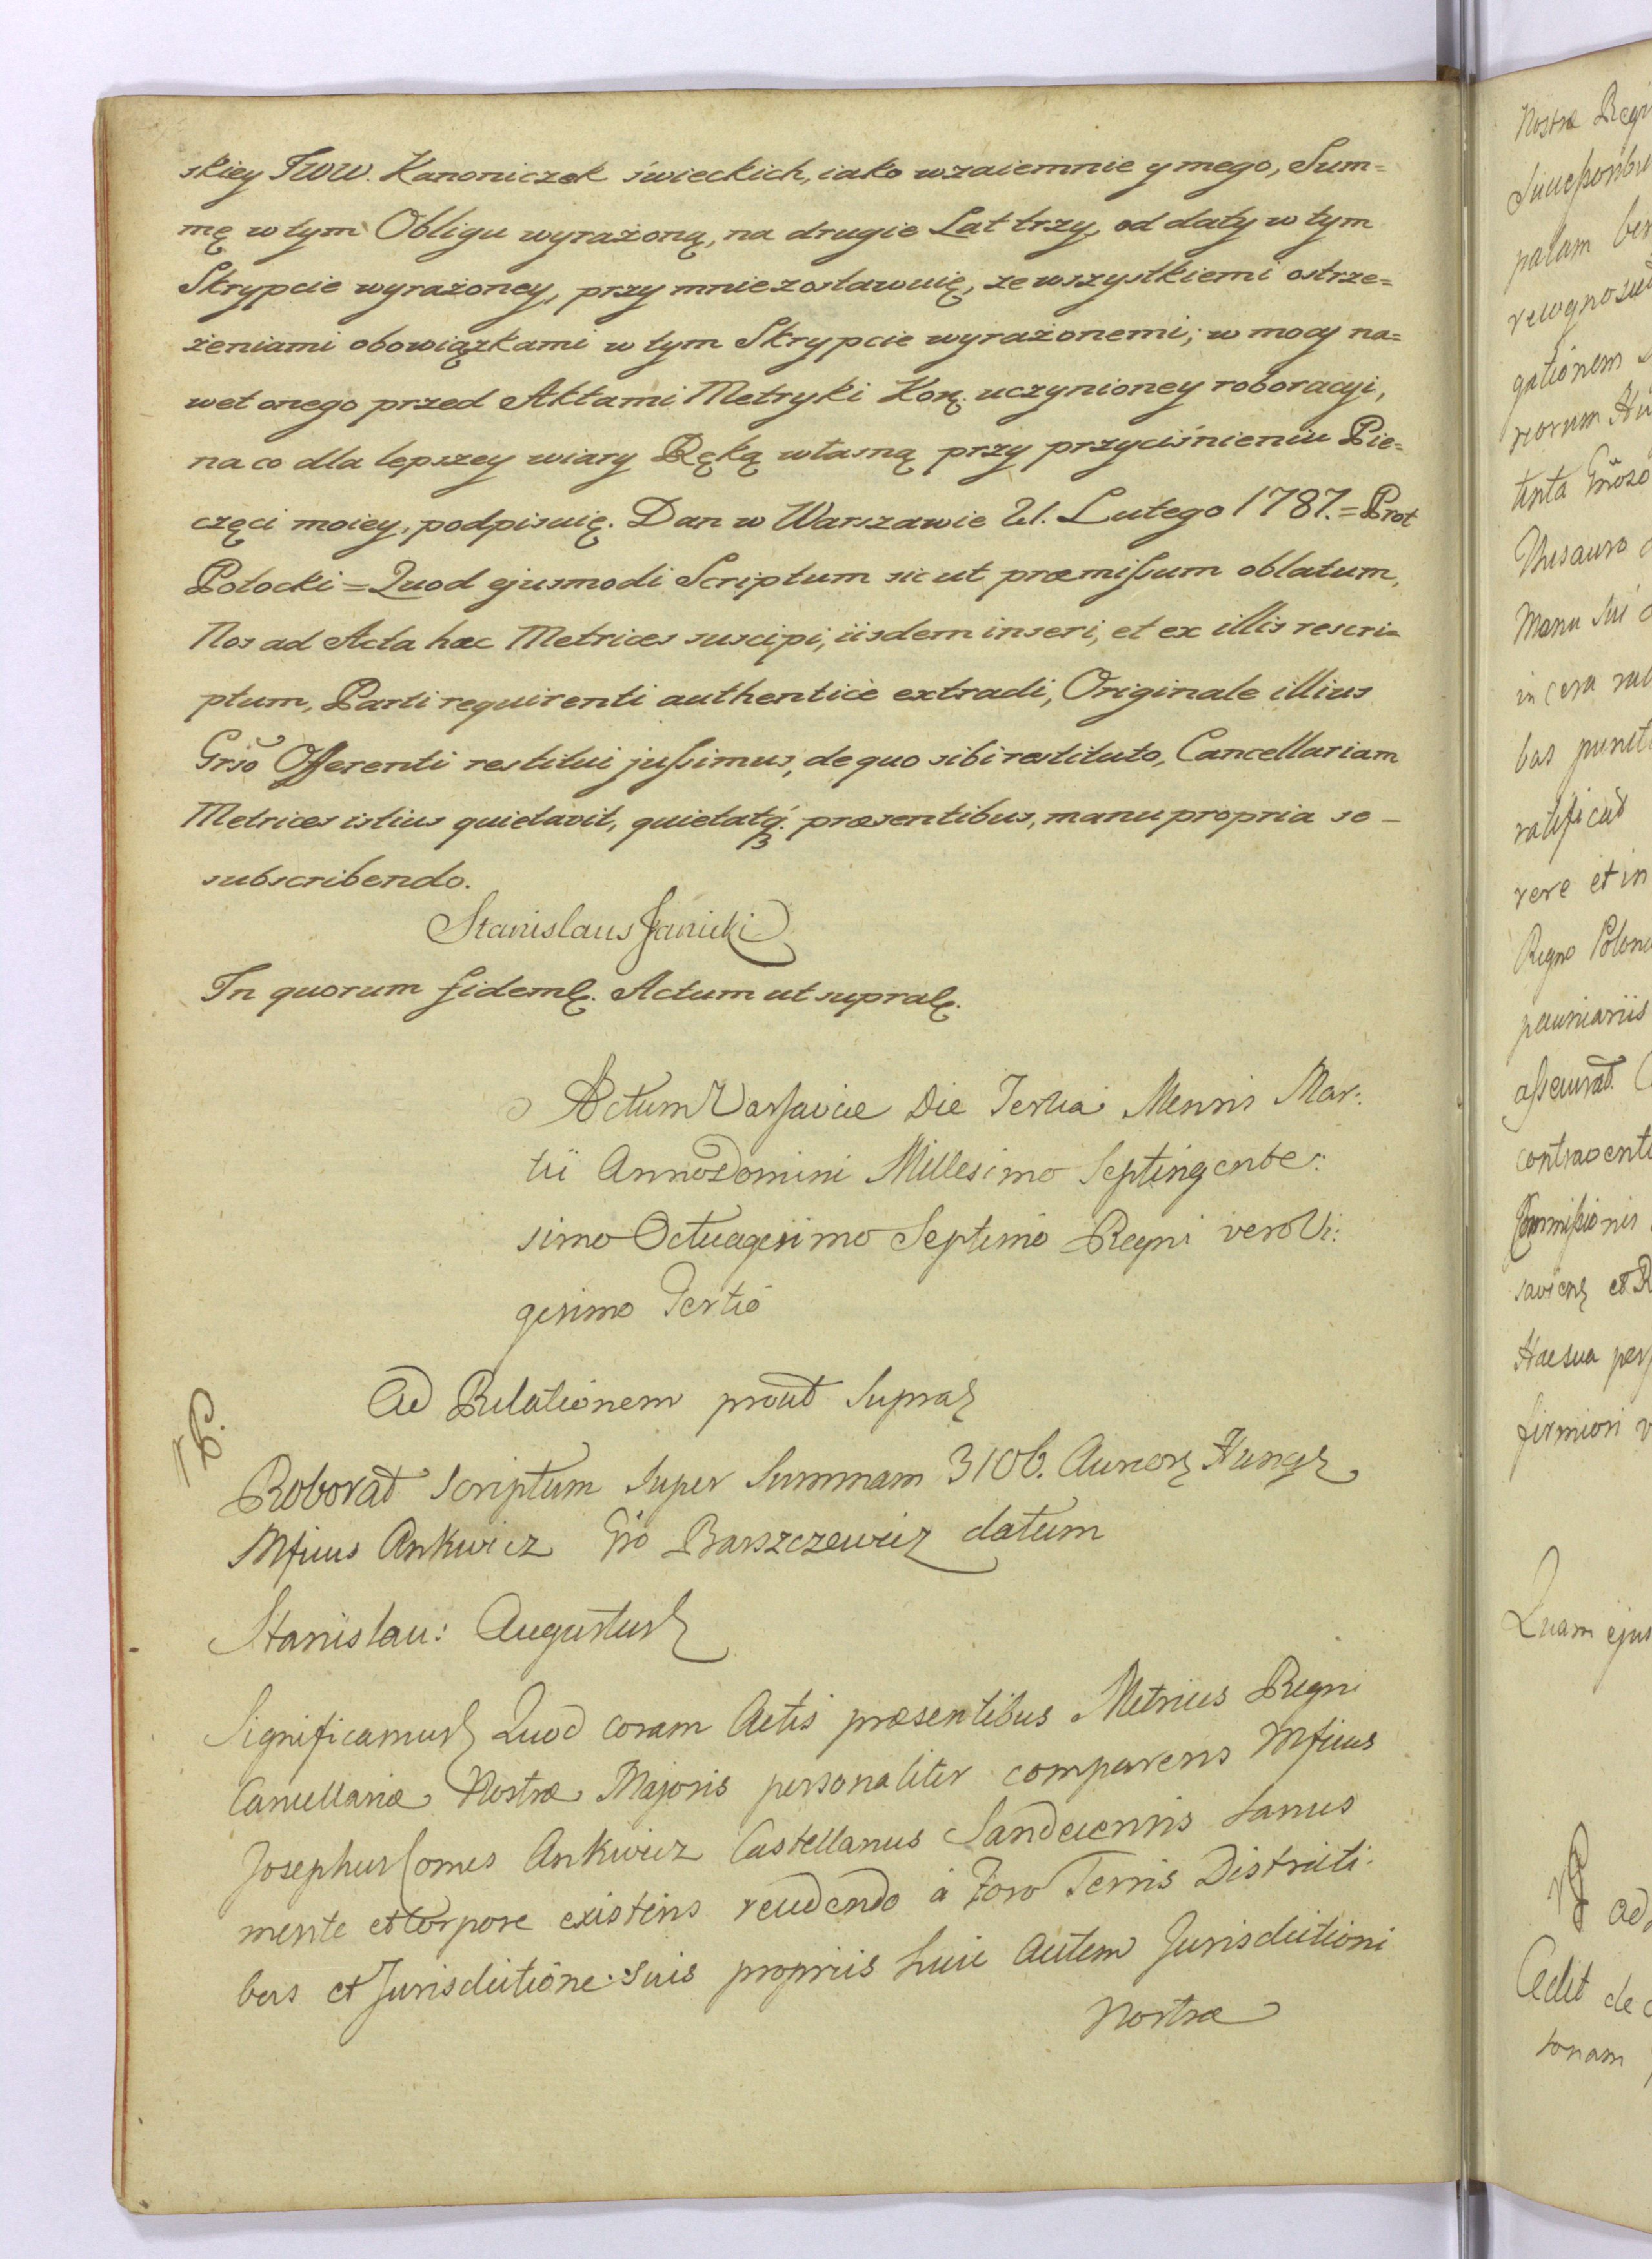 skiey JWW. Kanoniczek świeckich, iako wzaiemnie y mego, Sum=
mę w tym Obligu wyrażoną, na drugie Lat trzy, od daty w tym
Skrypcie wyrażoney, przy mnie zostawuię, ze wszystkiemi ostrze=
żeniami obowiązkami w tym Skrypcie wyrażonemi; w mocy na=
wet onego przed Aktami Metryki Kor. uczynioney roboracyi,
na co dla lepszey wiary Ręką własną przy przyciśnieniu Pie=
częci moiey, podpisuię. Dan w Warszawie 21. Lutego 1787. = Prot
Potocki = Quod ejusmodi Scriptum sicut præmissum oblatum,
Nos ad Acta hæc Metrices suscipi, iisdem inseri, et ex illis rescri=
ptum, Parti requirenti authenticè extradi, Originale illius
Grso Offerenti restitui jussimus, de quo sibi restituto, Cancellariam
Metrices istius quietavit, quietatq; præsentibus, manu propria se -
subscribendo.
Stanislaus Janicki
In quorum fidem. Actum ut supra.
Actum Varsaviæ Die Tertia Mensis Mar:
tii Anno Domini Millesimo Septingente:
simo Octuagesimo Septimo Regni vero Vi:
gesimo Tertio
Ad Relationem prout supra
Roborat Scriptum super Summam 3106. Aureor Hung
Mfcus Ankwicz Gso Barszczewicz datum
Stanislau: Augustus
Significamus Quod coram Actis præsentibus Metrices Regni
Cancellariæ Nostræ Majoris personaliter comparens Mfcus
Josephus Comes Ankwicz Castellanus Sandecensis sanus
mente et corpore existens recedendo à Foro Terris Districti:
bus et Jurisdictione suis propriis huic autem Jurisdictioni
Nostræ
Nostræ Regi
palam
gationem
Thesauro
Manu
in cera
bas
ratificat
vere et in
Regno Polon
pecuniariis
Commissionis
firmiori
Quam ejus
Cedit de